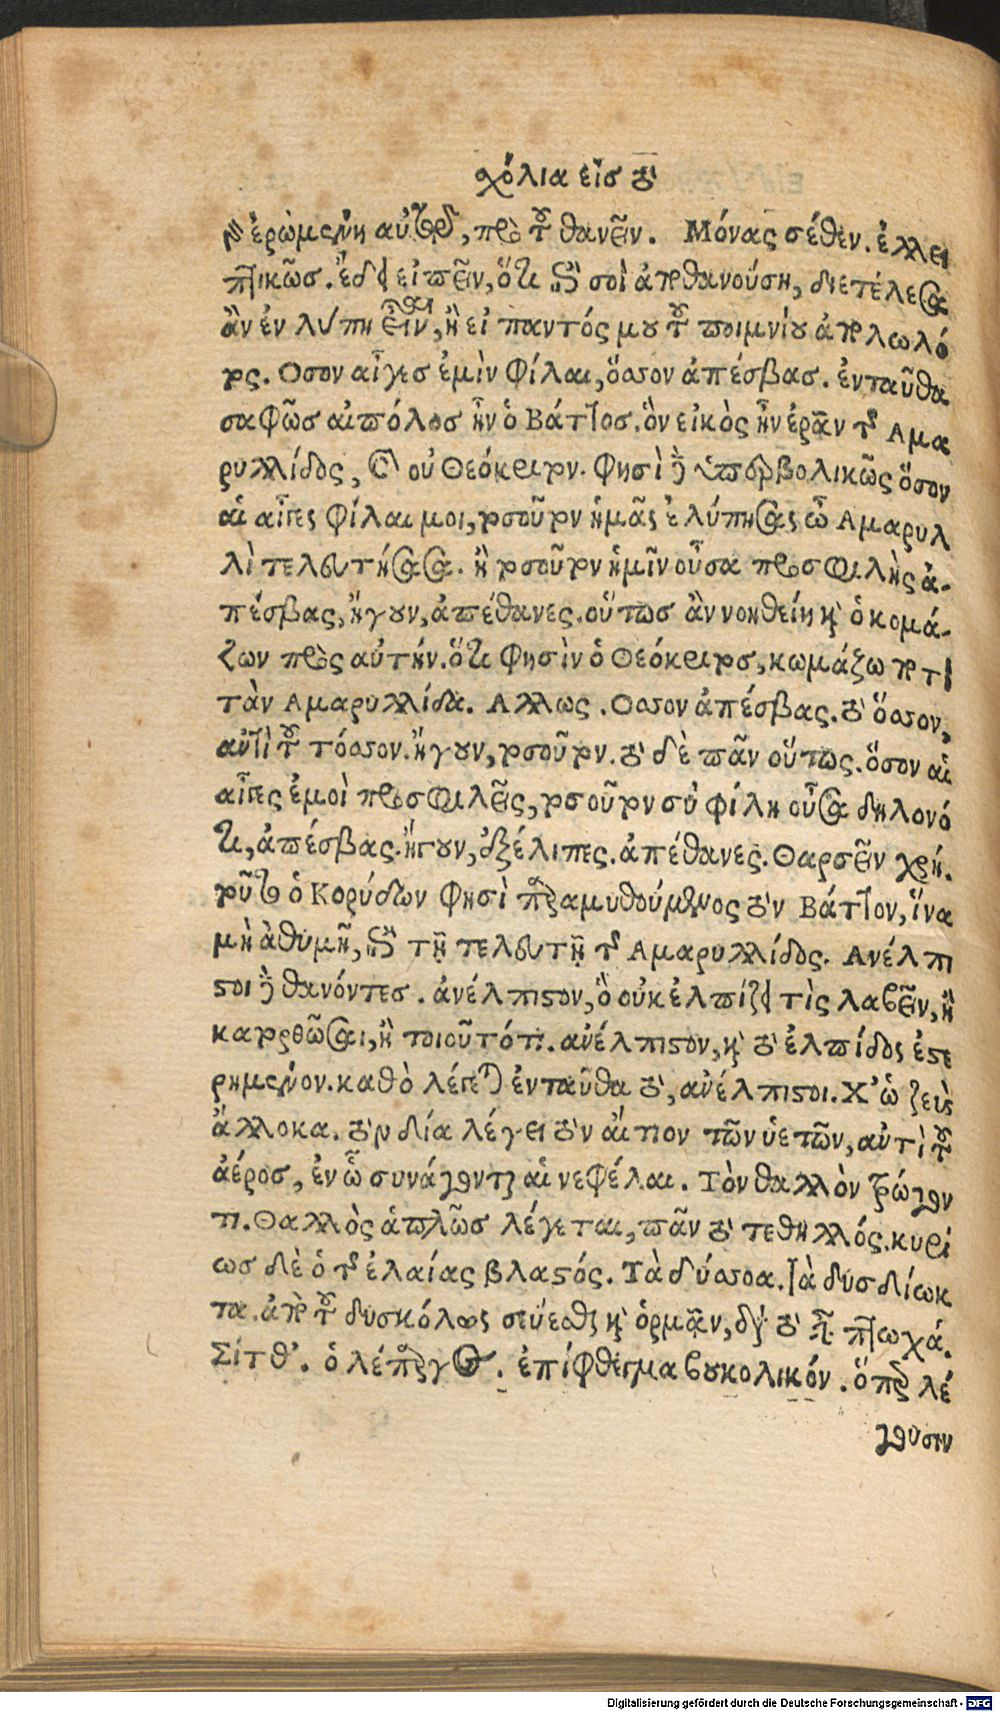 σχόλια εἰς τὸ
ἦν ἐρωμένη αὐτοῦ, πρὸ τοῦ θανεῖν. Μόνας σέθεν. ἐλλει
πτικῶς. ἔδει εἰπεῖν, ὅτι ἐπὶ σοὶ ἀποθανούσῃ, διετέλεσα
ἂν ἐν λύπῃ εἶναι, ἢ εἰ παντός μου τοῦ ποιμνίου ἀπολωλό
τος. Οσον αἶγες ἐμὶν φίλαι, ὅσσον ἀπέσβας. ἐνταῦθα
σαφῶς αἰπόλος ἦν ὁ Βάττος. ὃν εἰκὸς ἦν ἐρᾶν τῆς Αμα
ρυλλίδος, καὶ οὐ Θεόκριτον. φησὶ γοῦν ὑπερβολικῶς ὅσον
αἱ αἶγες φίλαι μοι, τοσοῦτον ἡμᾶς ἐλύπησας ὦ Αμαρυλ
λὶ τελευτήσασα. ἢ τοσοῦτον ἡμῖν οὖσα προσφιλὴς ἀ-
πέσβας, ἤγουν, ἀπέθανες. οὕτως ἂν νοηθείη καὶ ὁ κομά-
ζων πρὸς αὐτήν. ὅτι φησὶν ὁ Θεόκριτος, κωμάζω ποτὶ
τὰν Αμαρυλλίδα. Αλλως. Οσσον ἀπέσβας. τὸ ὅσσον,
ἀντὶ τοῦ τόσσον. ἤγουν, τοσοῦτον. τὸ δὲ πᾶν οὕτως. ὅσον αἱ
αἶγες ἐμοὶ προσφιλεῖς, τοσοῦτον σὺ φίλη οὖσα δηλονό
τι, ἀπέσβας. ἤγουν, ἐξέλιπες. ἀπέθανες. Θαρσεῖν χρή.
τοῦτο ὁ Κορύδων φησὶ παραμυθούμενος τὸν Βάττον, ἵνα
μὴ ἀθυμῇ, ἐπὶ τῇ τελευτῇ τῆς Αμαρυλλίδος. Ανέλπι
στοι δὲ θανόντες. ἀνέλπιστον, ὃ οὐκ ἐλπίζει τὶς λαβεῖν, ἢ
κατορθῶσαι, ἢ τοιοῦτό τι. ἀνέλπιστον, καὶ τὸ ἐλπίδος ἐστε
ρημένον. καθὸ λέγεται ἐνταῦθα τὸ, ἀνέλπιστοι. Χ' ὡ ζεὺς
ἄλλοκα. τὸν δία λέγει τὸν αἴτιον τῶν ὑετῶν, ἀντὶ τοῦ
ἀέρος, ἐν ᾧ συνάγονται αἱ νεφέλαι. Τὸν θαλλὸν τρώγον
τι. Θαλλὸς ἁπλῶς λέγεται, πᾶν τὸ τεθηλός. κυρί
ως δὲ ὁ τῆς ἐλαίας βλαστός. Τὰ δύσσοα. τὰ δυσδίωκ
τα. ἀπὸ τοῦ δυσκόλως σεύεσθαι καὶ ὁρμᾶν, διὰ τὸ εἶναι πτωχά.
Σίτθ'. ὁ λέπαργος. ἐπίφθεγμα βουκολικόν. ὅπερ λέ
γουσιν
Digitalisierung gefördert durch die Deutsche Forschungsgemeinschaft - DFG